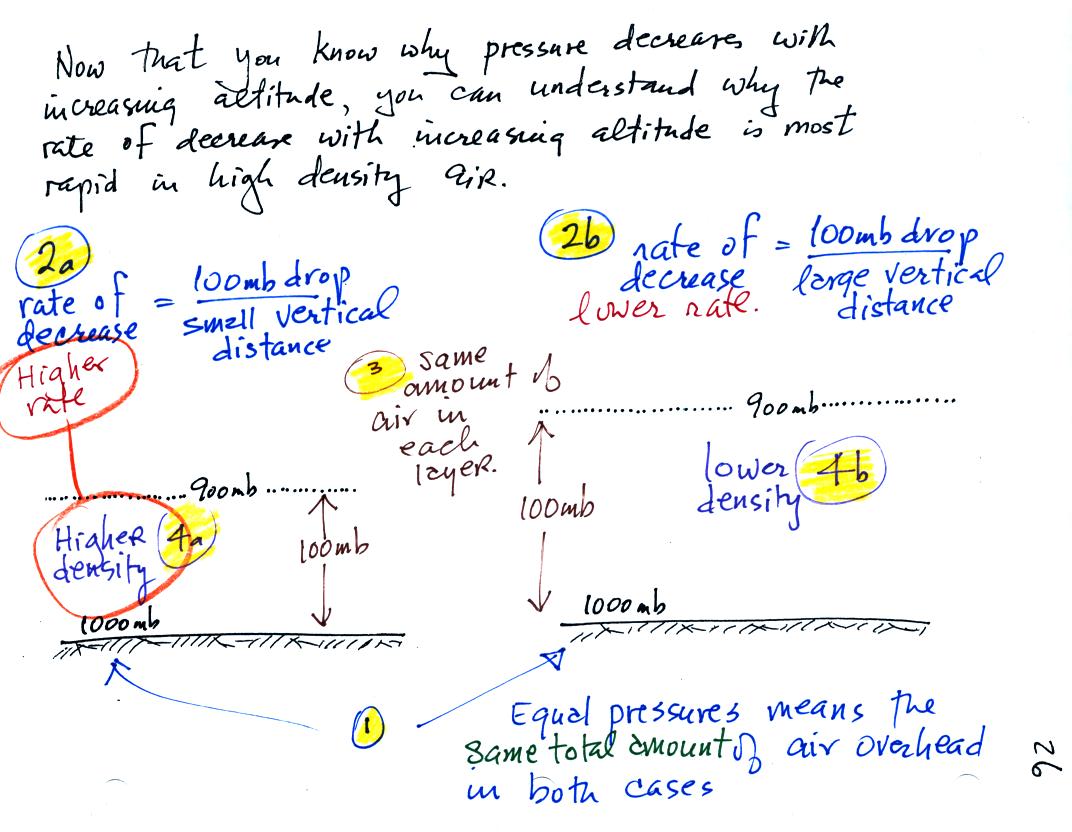 Now that you know why pressure decreases with
increasing altitude, you can understand why the
rate of decrease with increasing altitude is most
rapid in high density air.
2a
rate of decrease = 100mb drop
small vertical
distance
Higher
rate
2b
rate of decrease = 100mb drop
large vertical
distance
lower rate.
3 same
amount of
air in
each
layer.
900mb
Higher 4a
density
100mb
1000mb
900mb
lower 4b
density
100mb
1000mb
1
Equal pressures means the
same total amount of air overhead
in both cases
92